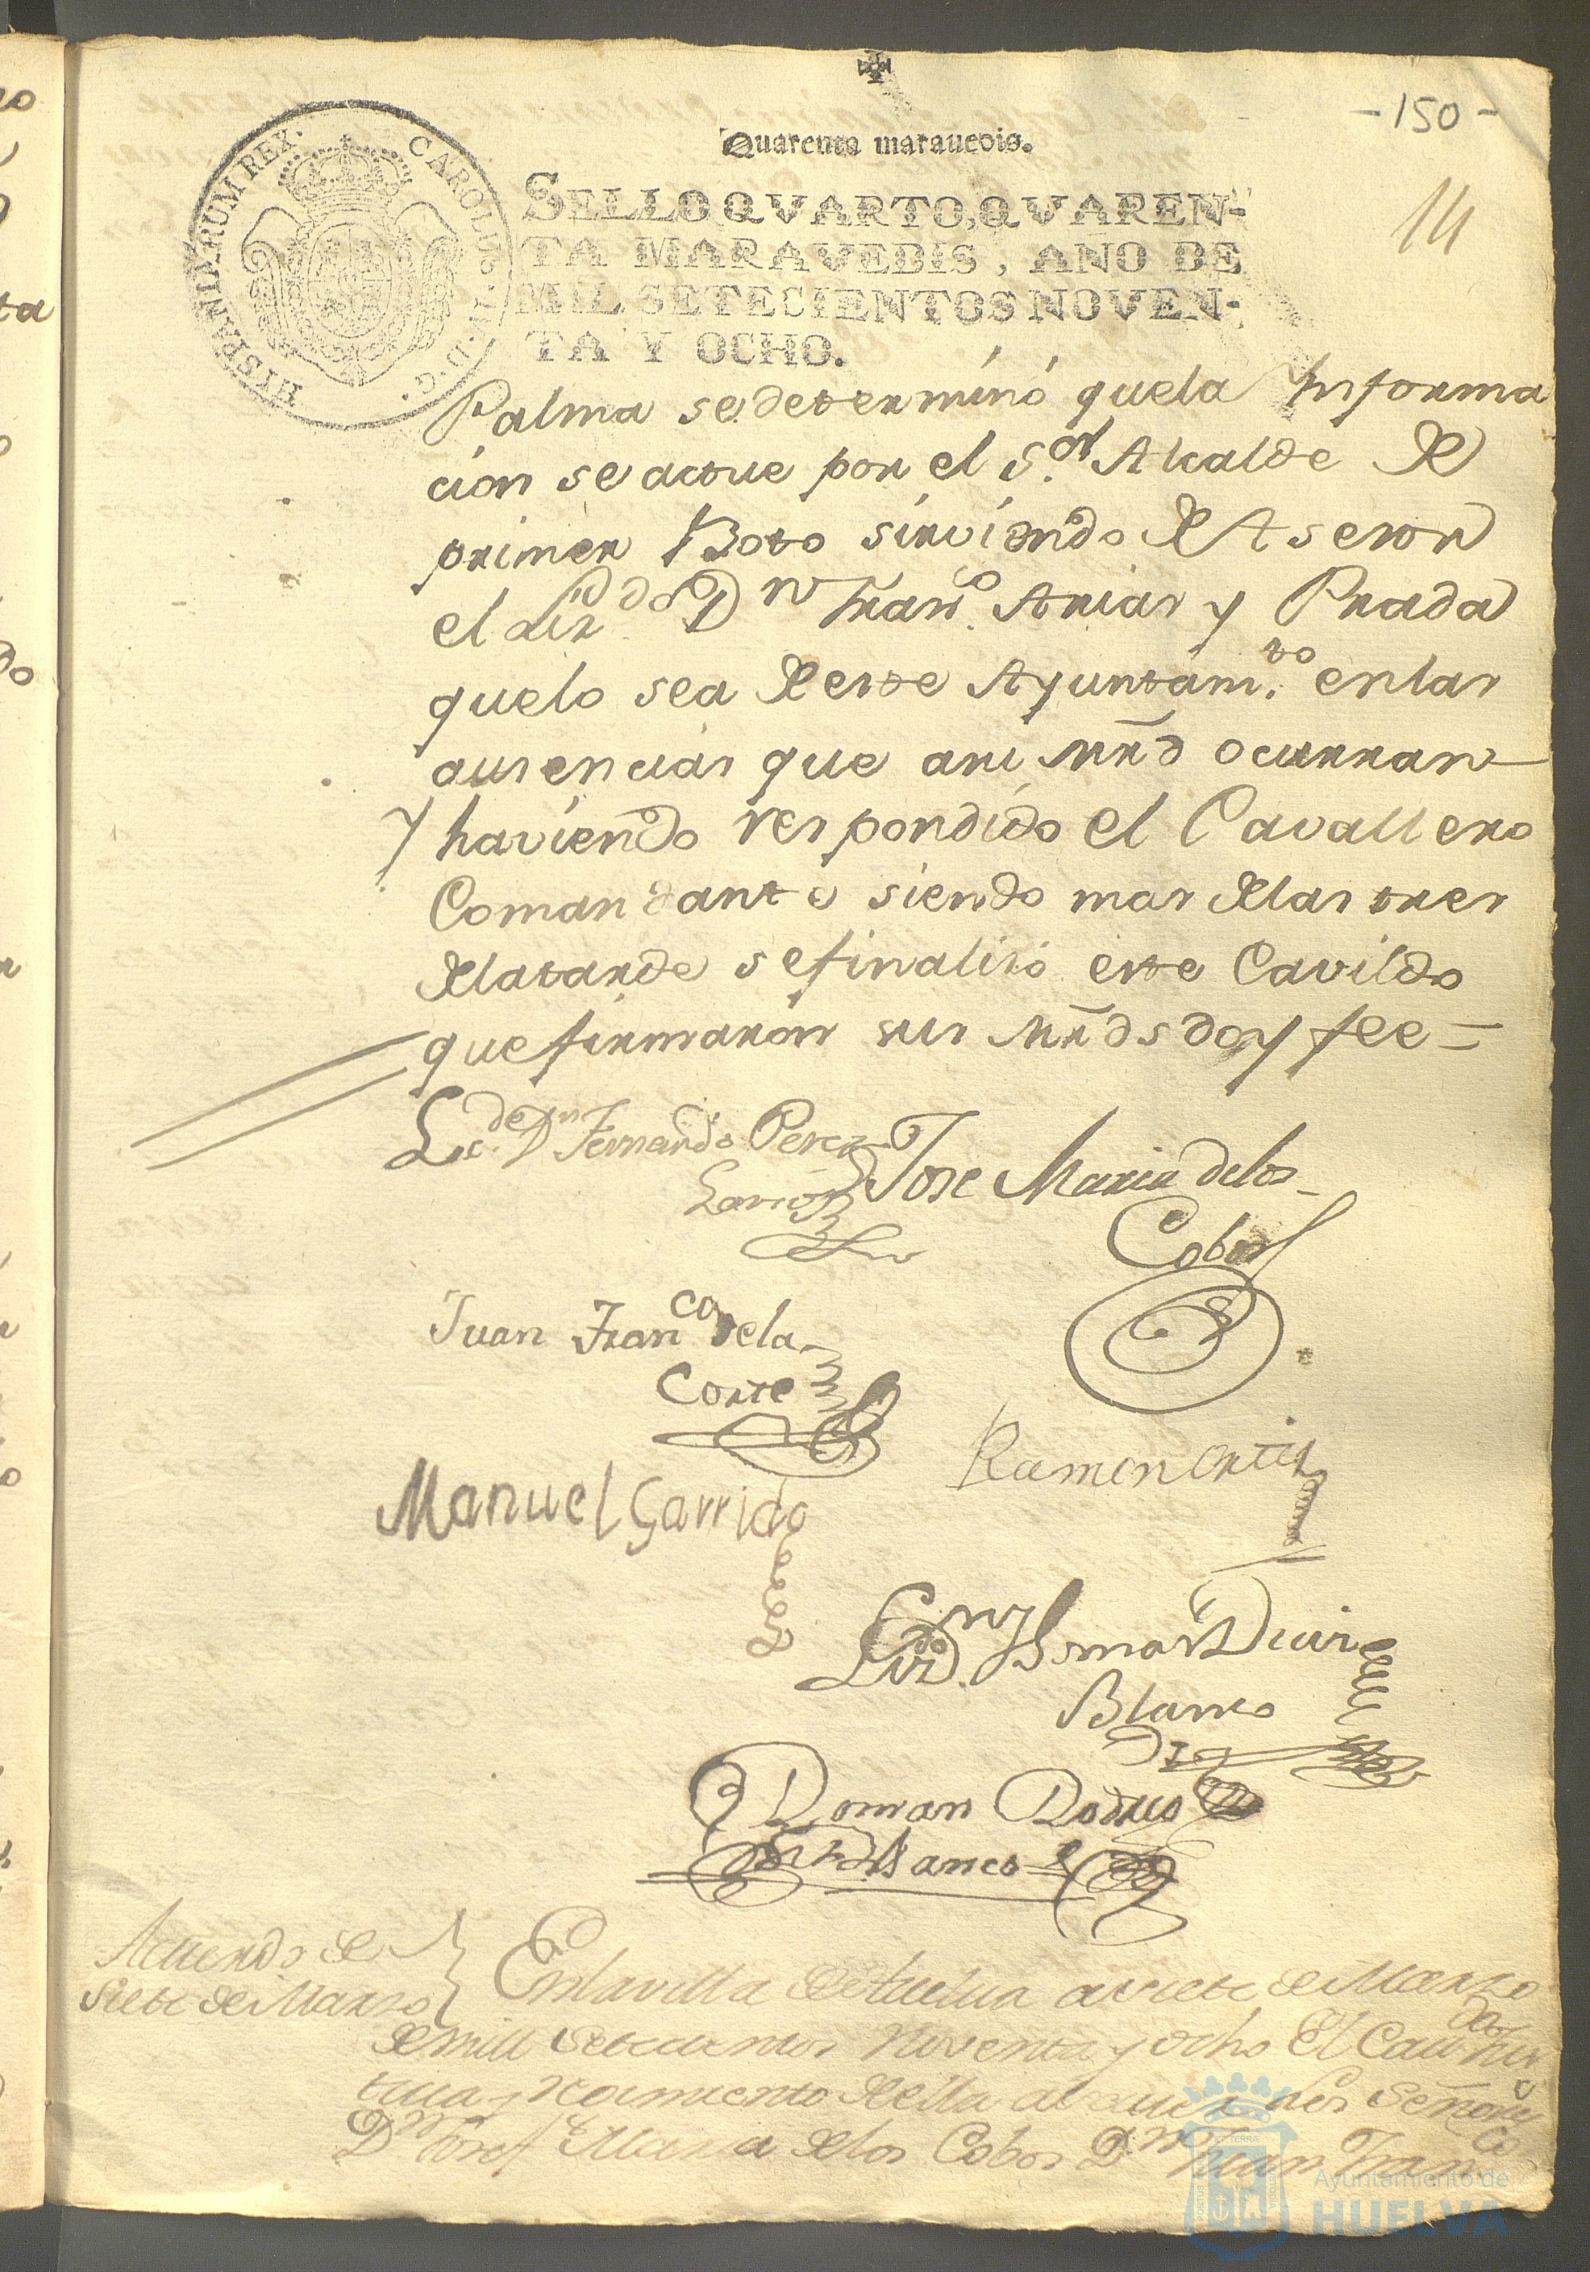 -150-
Quarenta maravedis.
14
HISPANIARUM REX. CAROLUS. IV. D. G.
SELLO QVARTO, QVAREN-
TA MARAVEDIS, AÑO DE
MIL SETECIENTOS NOVEN-
TA Y OCHO.
Palma se determinó quela Informa
cion se actue por el S.or Alcalde de
primer Boto sirviendo de Asesor
el Liz.do Dn Fran.co Arias y Prada
quelo sea de este Ayuntam.to enlas
ausencias que asi Mrd ocurran
y haviendo respondido el Cavallero
Comandante siendo mas delas tres
dela tarde se finalizó este Cavildo
que firmaron sus Mrds doy fee =
Lic.do Dn Fernando Perez
Jose Maria delos
Cobos
Juan Fran.co dela
Corte
Ramon Ortiz
Manuel Garrido
Liz.do Dn
Blanco
Roman
Blanco
Acuerdo de
Siete de Marzo
Enla villa de Huelva a siete de Marzo
de mill setecientos noventa y ocho El Cau.do Jus
ticia y Reximiento de ella al que los Señores
Dn Josef Maria delos Cobos Dn Juan Fran.co
Ayuntamiento de
HUELVA